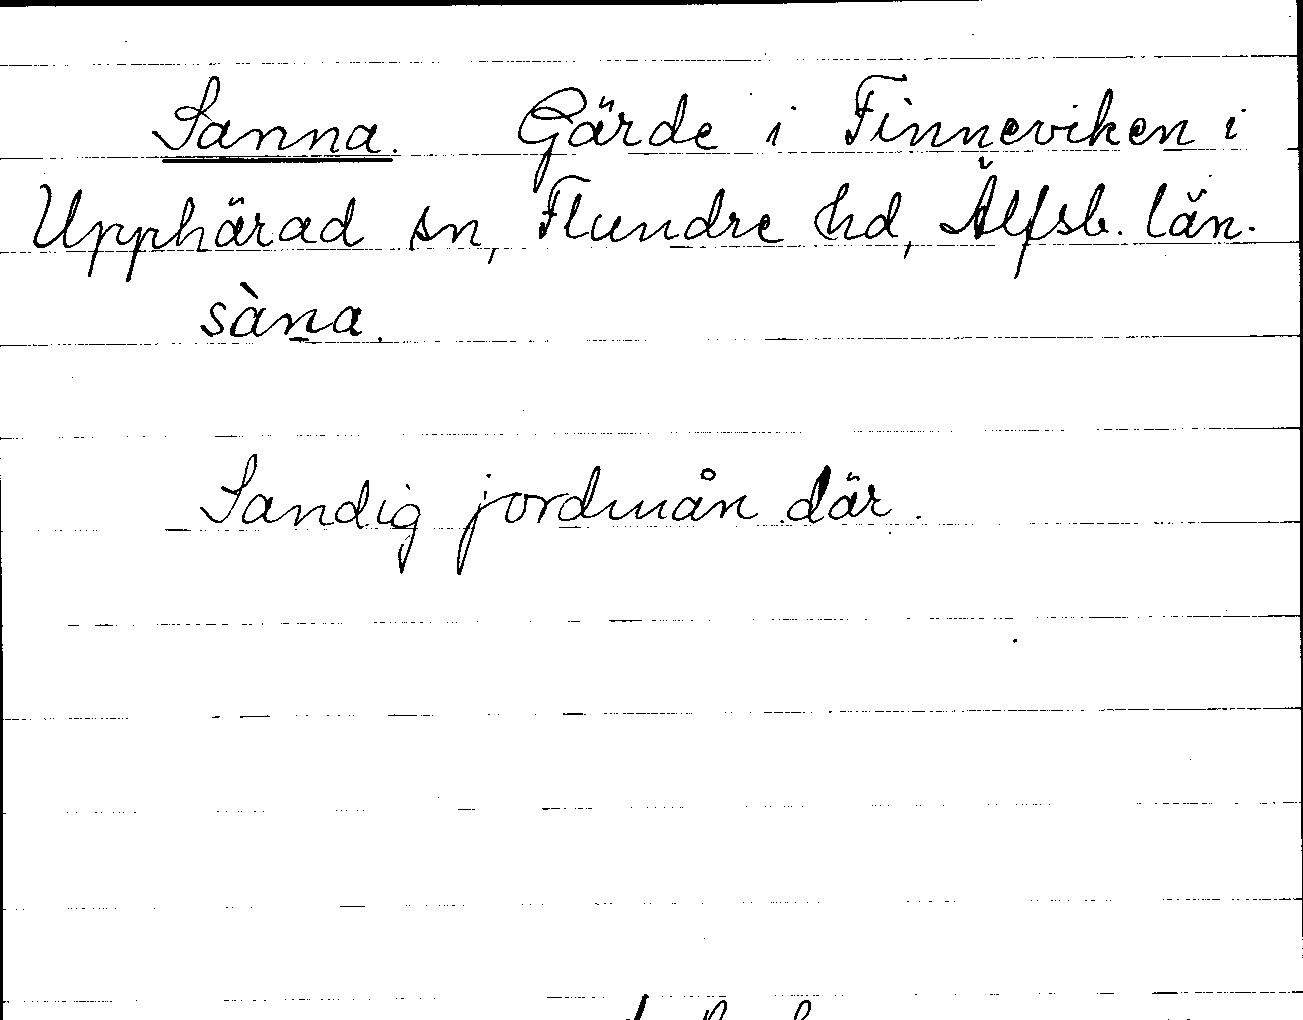 Sanna. Gärde i Finneviken i
Upphärad sn, Flundre hd, Älfsb. län.
sàna.
Sandig jordmån där.